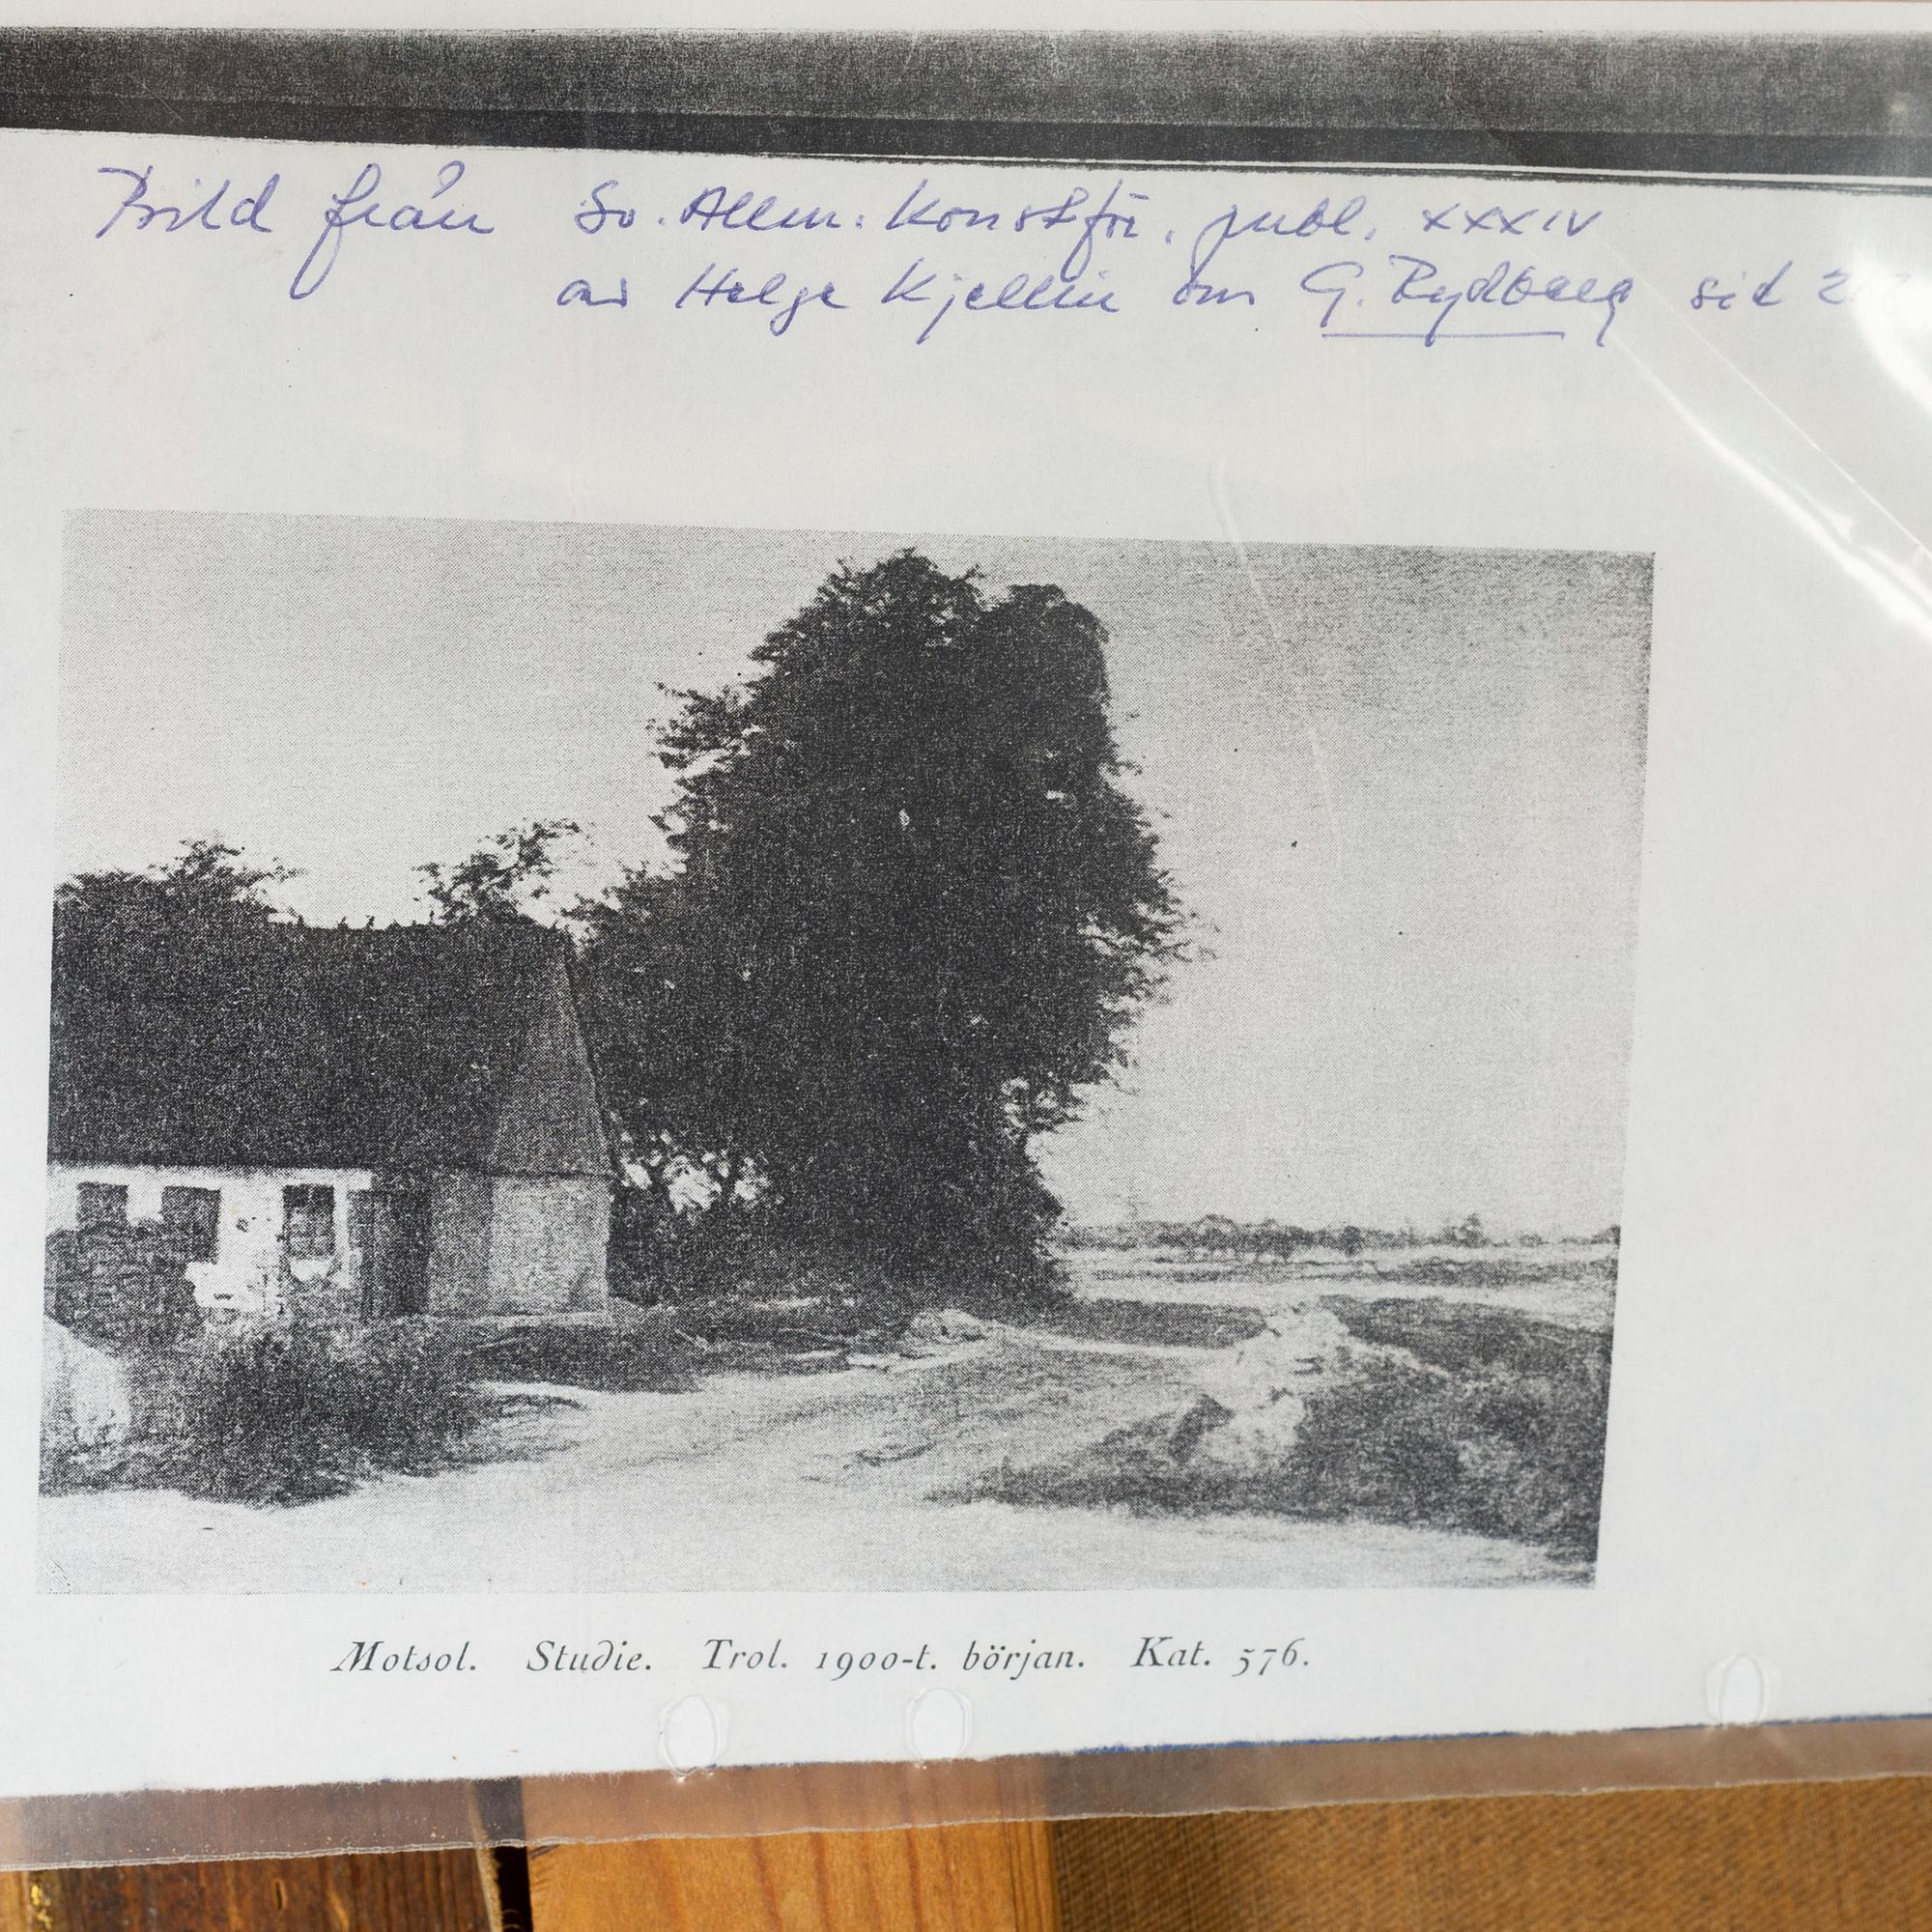 Bild från Sv. Allm. Konstför. publ. XXXIV
av Helge Kjellin om G. Rydberg sid
Motsol. Studie. Trol. 1900-t. början. Kat. 576.